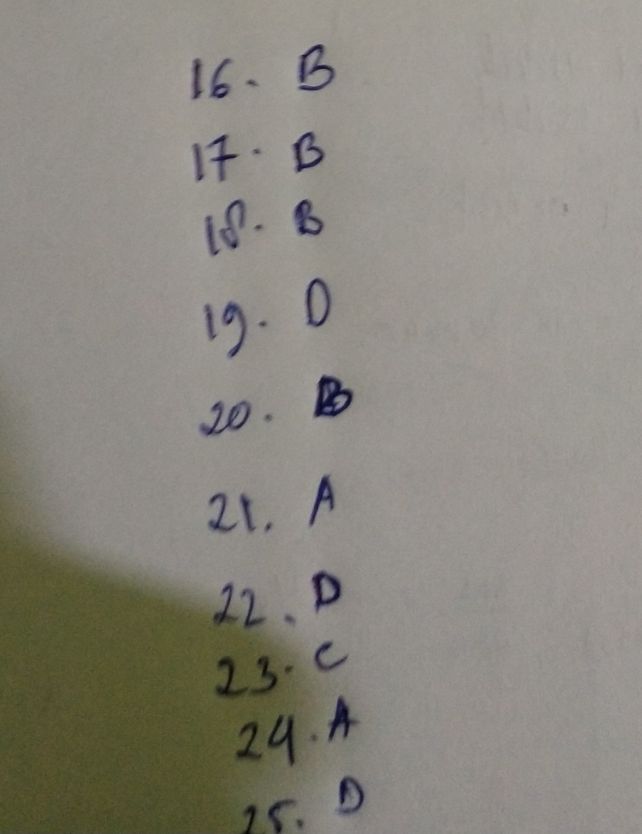 16. B
17. B
18. B
19. D
20. B
21. A
22. D
23. C
24. A
25. D